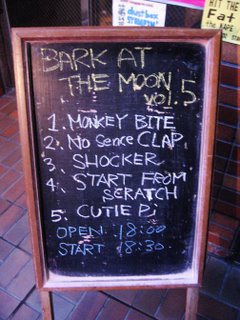 dustbox
HIT THE
Fat
BARK AT
THE MOON
VOL.5
1. MONKEY BITE
2. No Sence CLAP
3. SHOCKER
4. START FROM
SCRATCH
5. CUTIE Pi
OPEN 18:00
START 18:30